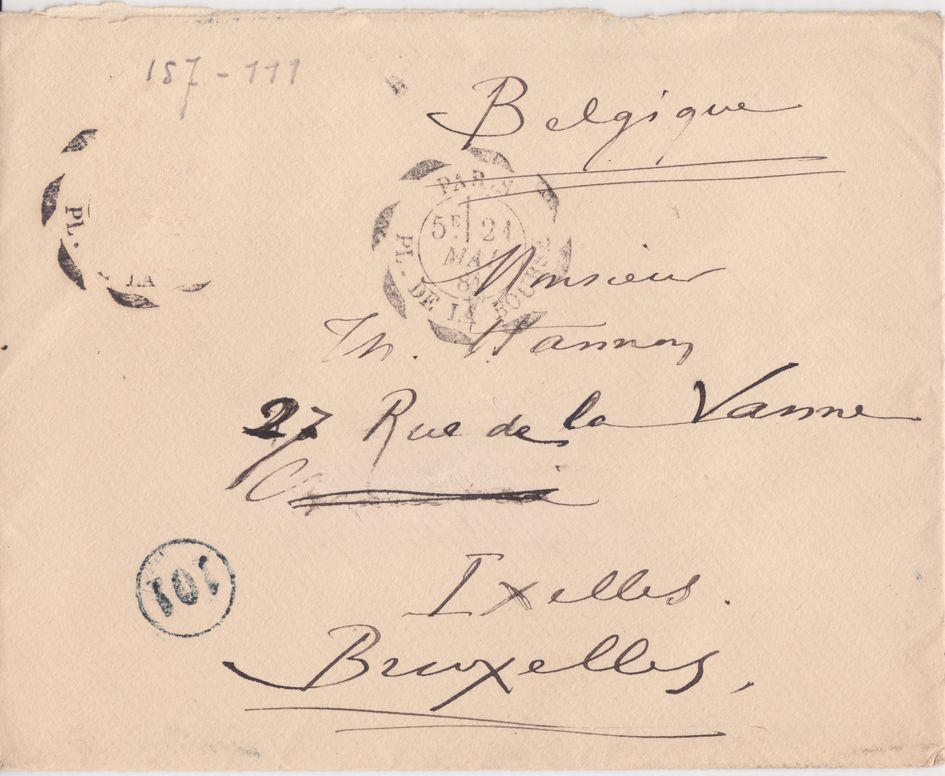 157-111
Belgique
PARIS
5E 21
MAI
8
PL. DE LA BOURSE
PL. LA
Monsieur
Th. Hannon
27 Rue de la Vanne
Ixelles.
Bruxelles,
101